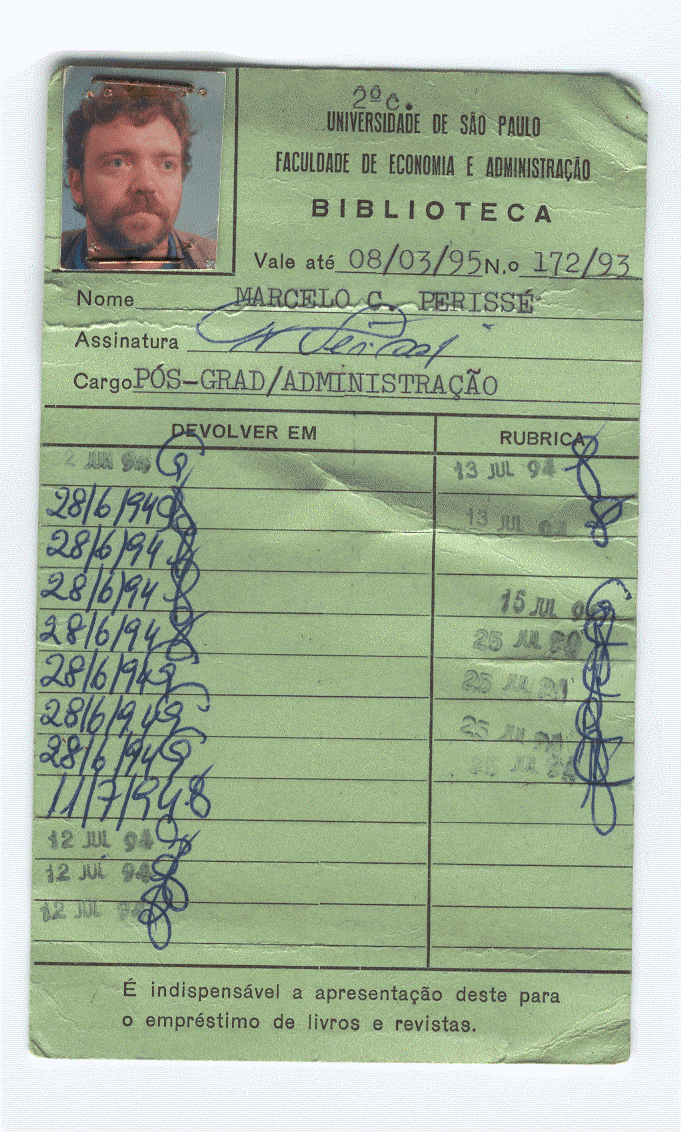 2º C.
UNIVERSIDADE DE SÃO PAULO
FACULDADE DE ECONOMIA E ADMINISTRAÇÃO
BIBLIOTECA
Vale até 08/03/95 N.o 172/93
Nome MARCELO C. PERISSÉ
Assinatura
Cargo PÓS-GRAD/ADMINISTRAÇÃO
DEVOLVER EM RUBRICA
2 JUN 94 13 JUL 94
28/6/94 13 JUL 94
28/6/94
28/6/94 15 JUL 94
28/6/94 25 JUL 94
28/6/94 25 JUL 94
28/6/94 25 JUL 94
28/6/94 25 JUL 94
11/7/94
12 JUL 94
12 JUL 94
12 JUL 94
É indispensável a apresentação deste para
o empréstimo de livros e revistas.